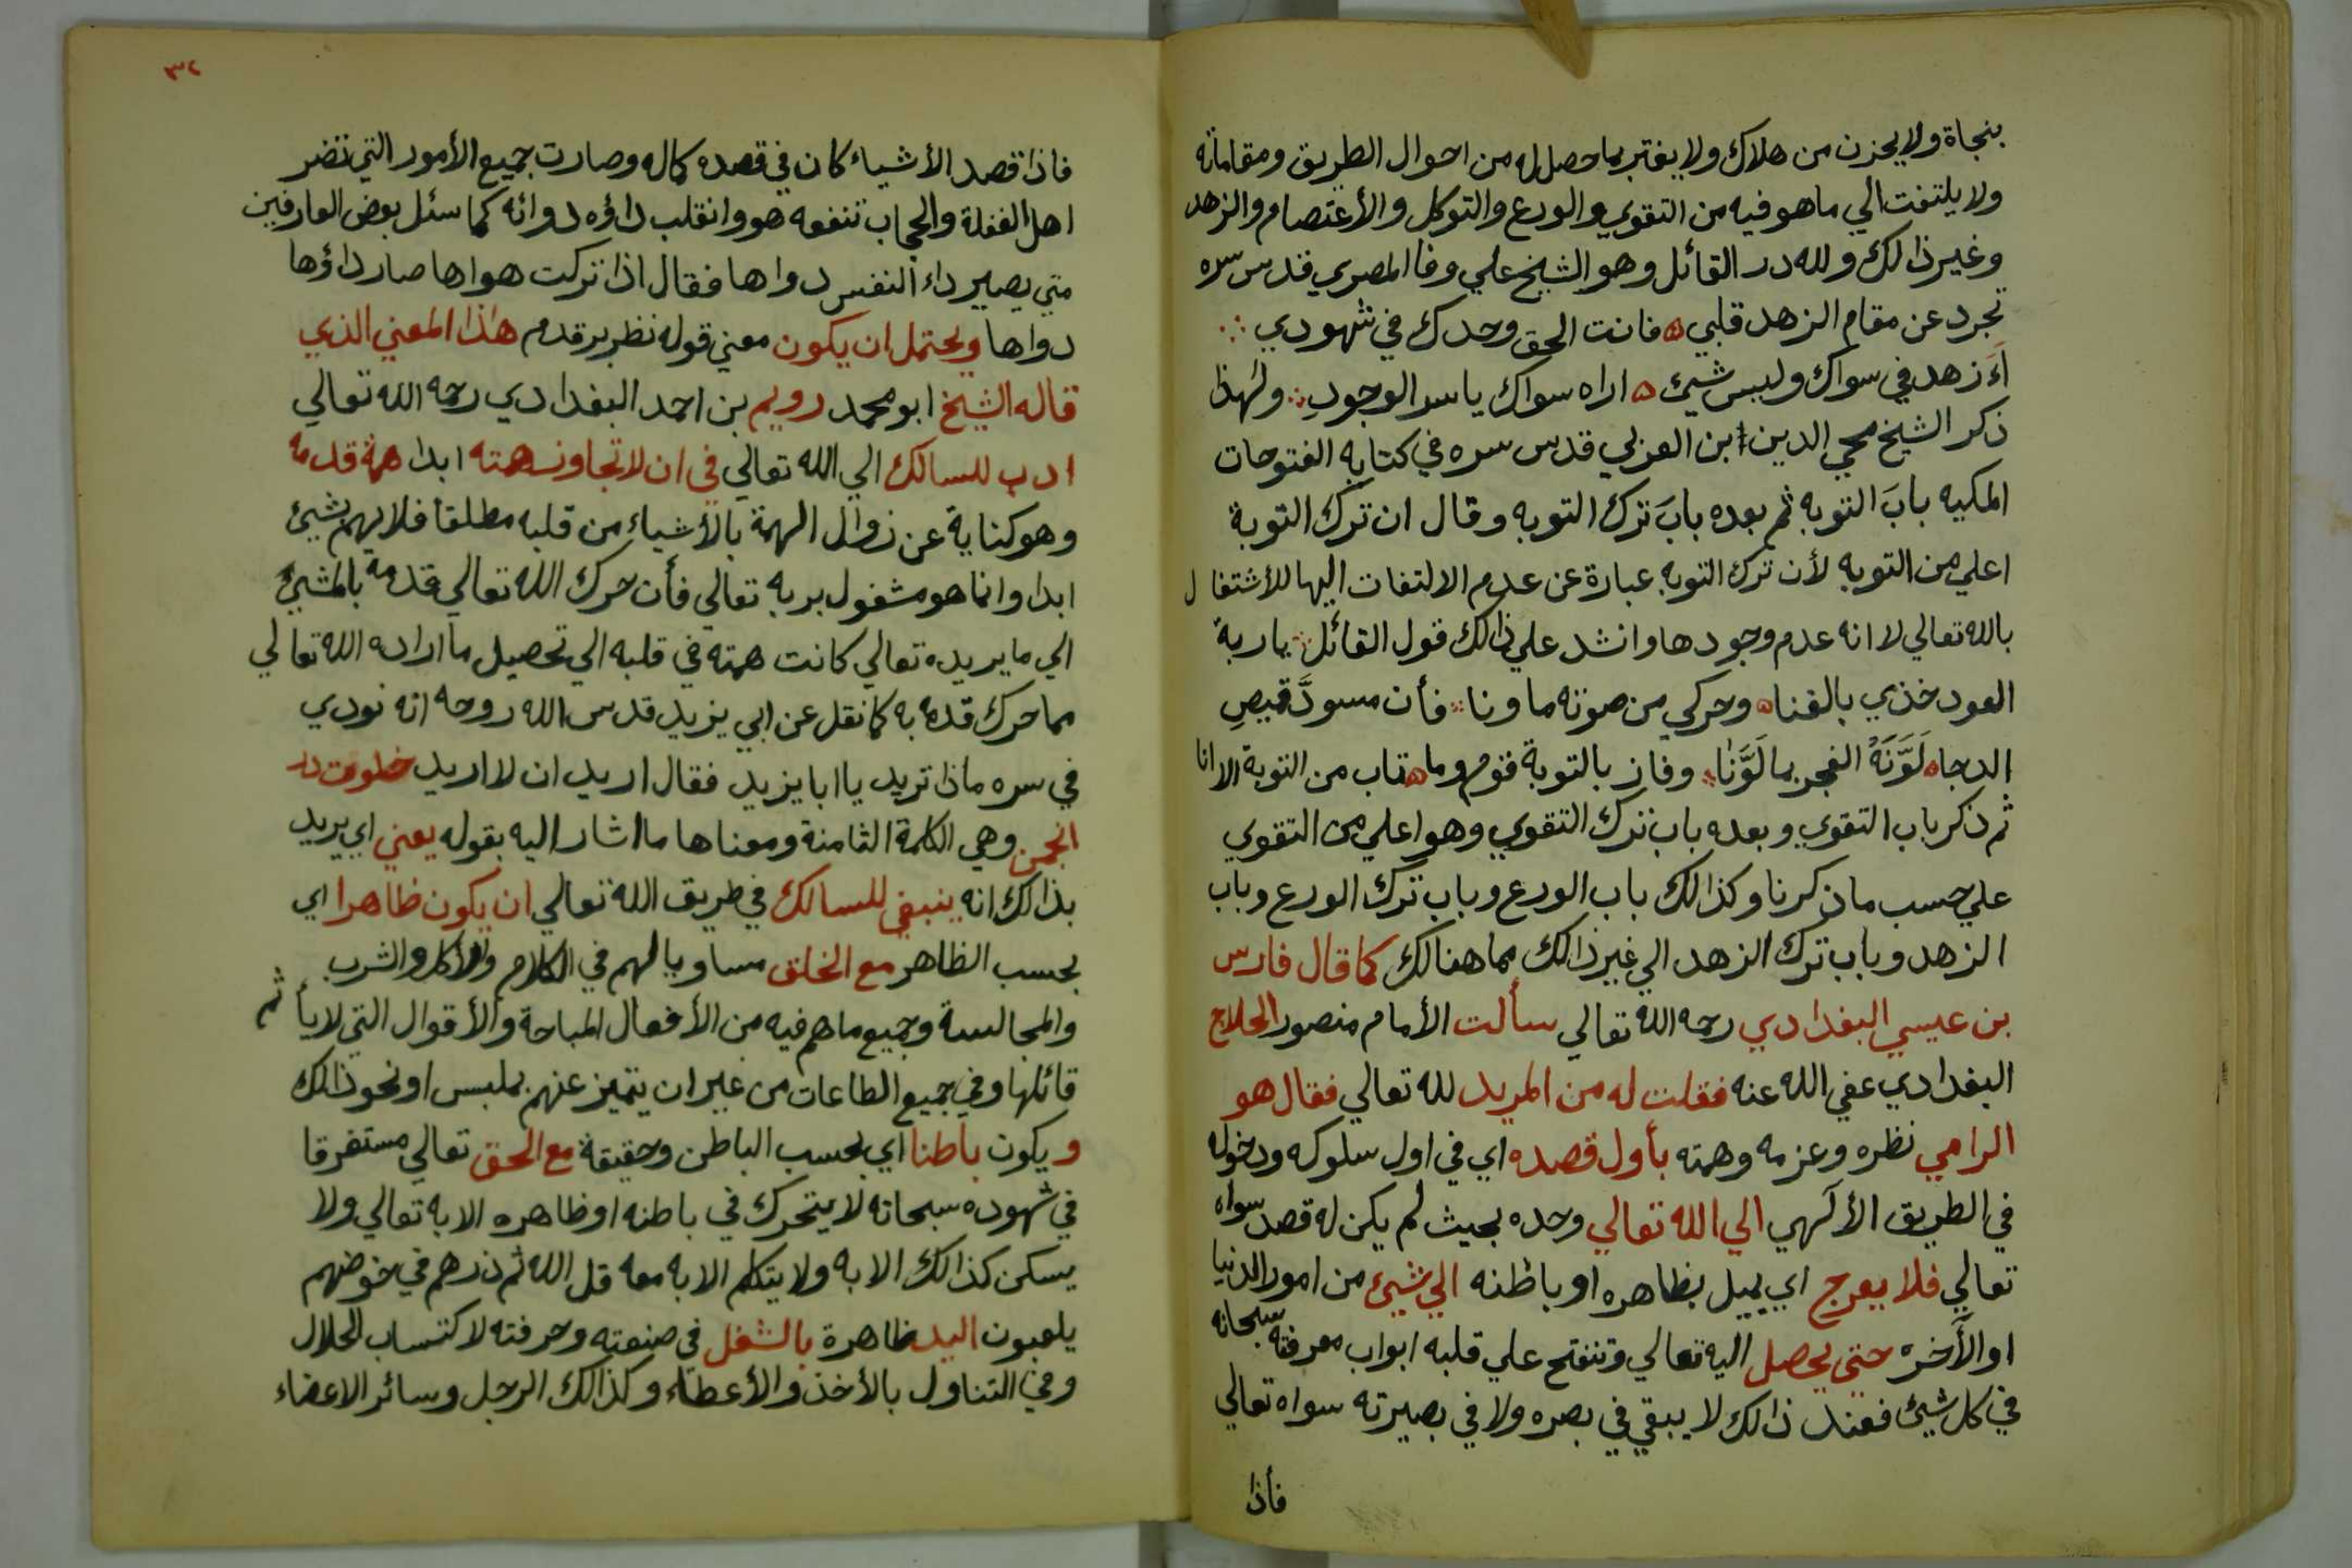 بنجاة ولا يحزن من هلاك ولا يغتر بما حصل له من احوال الطريق ومقاماته
ولا يلتفت الي ما هو فيه من التقوي والورع والتوكل والأعتصام والزهد
وغير ذالك ولله در القائل وهو الشيخ علي وفا المصري قدس سره
تجرد عن مقام الزهد قلبي ۵ فانت الحق وحدك في شهودي ∴
أَءَزهد في سواك وليس شيئ ۵ اراه سواك يا سر الوجودِ ∴ ولهذا
ذكر الشيخ محي الدين ابن العربي قدس سره في كتابه الفتوحات
المكيه بابَ التوبه ثم بعده بابَ ترك التوبه وقال ان ترك التوبة
اعلي من التوبه لأن ترك التوبه عبارة عن عدم الالتفات اليها للأشتغال
بالله تعالي لا انه عدم وجودها وانشد علي ذالك قول القائل ∴ يا ربة
العود خذي بالغنا ۵ وحركي من صوته ما ونا ∴ فأن مسودَّ قميصِ
الدجا ۵ لَوَّنَهُ الفجر بما لَوَّنَا ∴ وفاز بالتوبة قوم وما ۵ تاب من التوبة الا انا
ثم ذكر باب التقوي وبعده باب ترك التقوي وهو اعلي من التقوي
علي حسب ما ذكرنا وكذالك باب الورع وباب ترك الورع وباب
الزهد وباب ترك الزهد الي غير ذالك مما هنالك كما قال فارس
بن عيسي البغدادي رحمه الله تعالي سألت الأمام منصور الحلاج
البغدادي عفي الله عنه فقلت له من المريد لله تعالي فقال هو
الرامي نظره وعزمه وهمته بأول قصده اي في اول سلوكه ودخوله
في الطريق الألهي الي الله تعالي وحده بحيث لم يكن له قصد سواه
تعالي فلا يعرج اي يميل بظاهره او باطنه الي شيئ من امور الدنيا
او الآخره حتي يحصل اليه تعالي وتنفتح علي قلبه ابواب معرفته سبحانه
في كل شيئ فعند ذالك لا يبقي في بصره ولا في بصيرته سواه تعالي
فأذا
٣٢
فاذا قصد الأشياء كان في قصده كماله وصارت جميع الأمور التي تضر
اهل الغفلة والحجاب تنفعه هو وانقلب داؤه دوائه كما سئل بعض العارفين
متي يصير داء النفس دواها فقال اذا تركت هواها صار داؤها
دواها ويحتمل ان يكون معني قوله نظر بر قدم هذا المعني الذي
قاله الشيخ ابو محمد رويم بن احمد البغدادي رحمه الله تعالي
ادب للسالك الي الله تعالي في ان لا تجاوز همته ابدا همة قدمه
وهو كناية عن زوال الهمة بالأشياء من قلبه مطلقا فلا يهم بشيئ
ابدا وانما هو مشغول بربه تعالي فأن حرك الله تعالي قدمه بالمشيئ
الي ما يريده تعالي كانت همته في قلبه الي تحصيل ما اراده الله تعالي
مما حرك قدمه به كما نقل عن ابي يزيد قدس الله روحه انه نودي
في سره ماذا تريد يا ابا يزيد فقال اريد ان لا اريد خلوت در
انجمن وهي الكلمة الثامنة ومعناها ما اشار اليه بقوله يعني اي يريد
بذالك انه ينبغي للسالك في طريق الله تعالي ان يكون ظاهرا اي
بحسب الظاهر مع الخلق مساويا لهم في الكلام والأكل والشرب
والمجالسة وجميع ما هم فيه من الأفعال المباحة والأقوال التي لا يأثم
قائلها وفي جميع الطاعات من غير ان يتميز عنهم بملبس او نحو ذالك
ويكون باطنا اي بحسب الباطن وحقيقة مع الحق تعالي مستغرقا
في شهوده سبحانه لا يتحرك في باطنه او ظاهره الا به تعالي ولا
يسكن كذالك الا به ولا يتكلم الا به معه قل الله ثم ذرهم في خوضهم
يلعبون اليد ظاهرة بالشغل في صنعته وحرفته لاكتساب الحلال
وفي التناول بالأخذ والأعطاء وكذالك الرجل وسائر الاعضاء